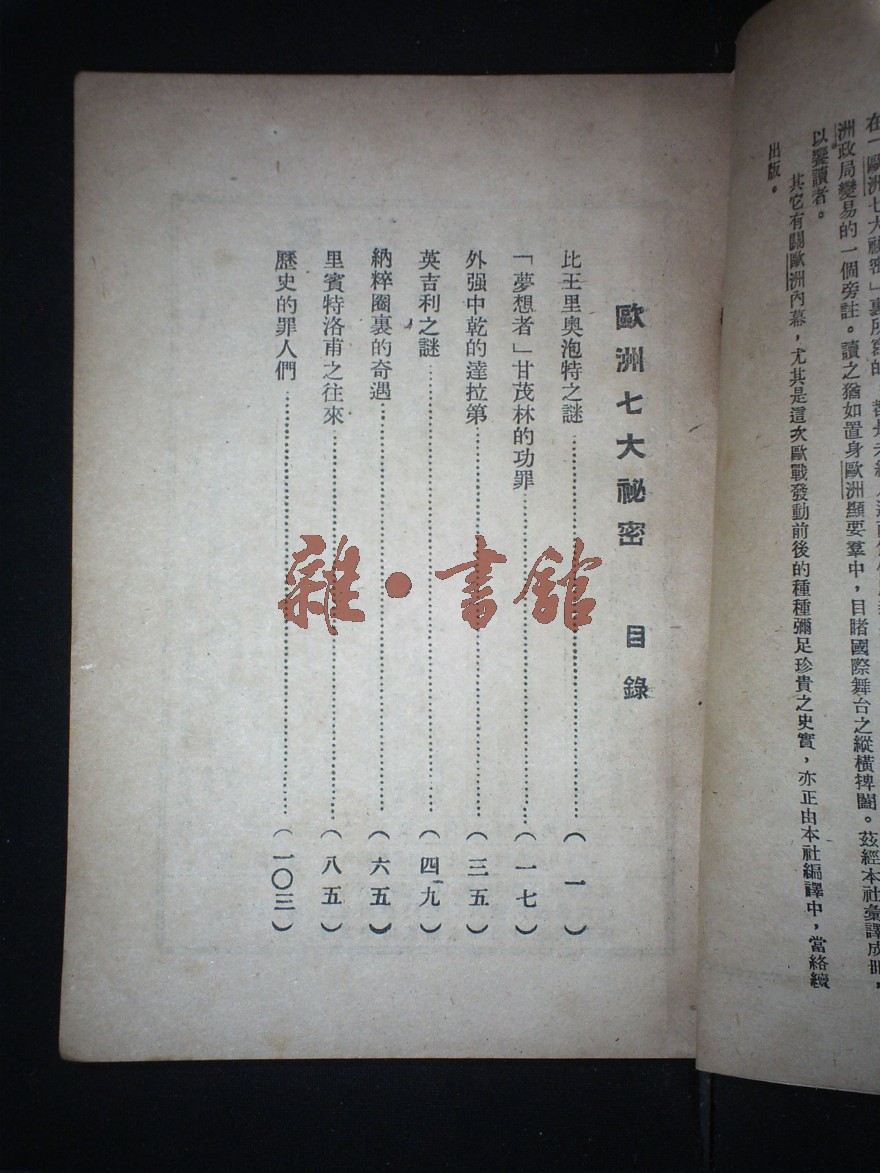 洲政局變易的一個旁註。讀之猶如置身歐洲顯要羣中，目睹國際舞台之縱橫捭闔。茲經本社彙譯成冊，
以饗讀者。
其它有關歐洲內幕，尤其是這次歐戰發動前後的種種彌足珍貴之史實，亦正由本社編譯中，當絡續
出版。
歐洲七大祕密　目錄
比王里奧泡特之謎……（一）
「夢想者」甘茂林的功罪……（一七）
外强中乾的達拉第……（三五）
英吉利之謎……（四九）
納粹圈裏的奇遇……（六五）
里賓特洛甫之往來……（八五）
歷史的罪人們……（一〇三）
雜·書館